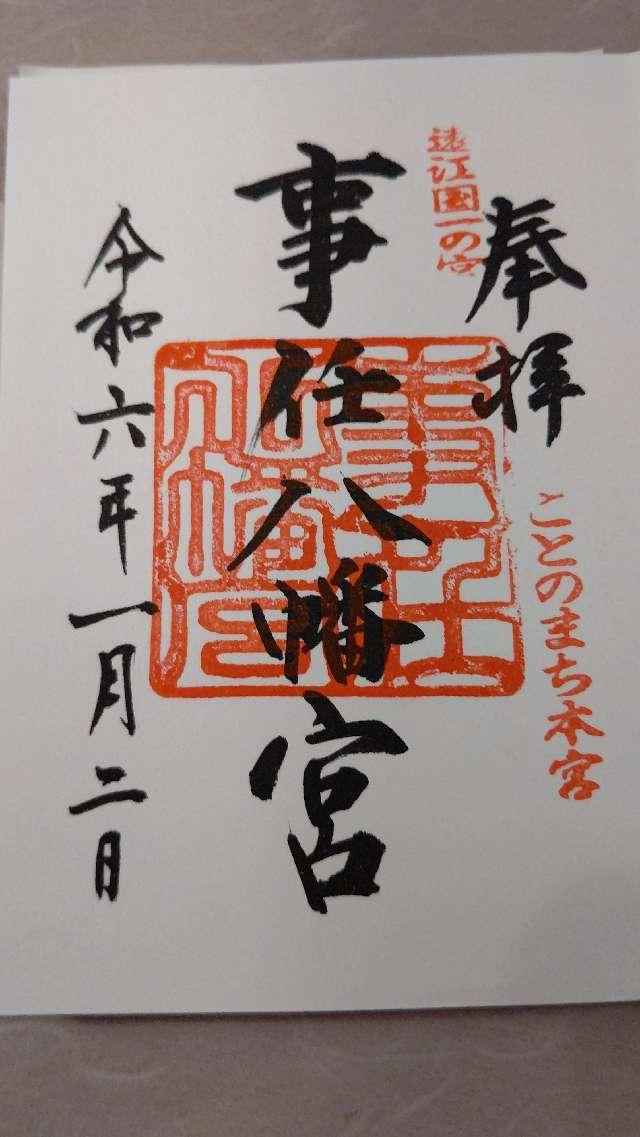 奉拝
ことのまち本宮
遠江国一の宮
事任八幡宮
事任八幡宮
令和六年一月二日